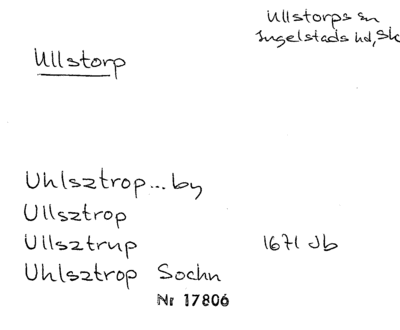 Ullstorps sn
Ingelstads hd, Sk
Ullstorp
Uhlsztrop...by
Ullsztrop
Ullsztrup 1671 Jb
Uhlsztrop Sochn
Nr 17806